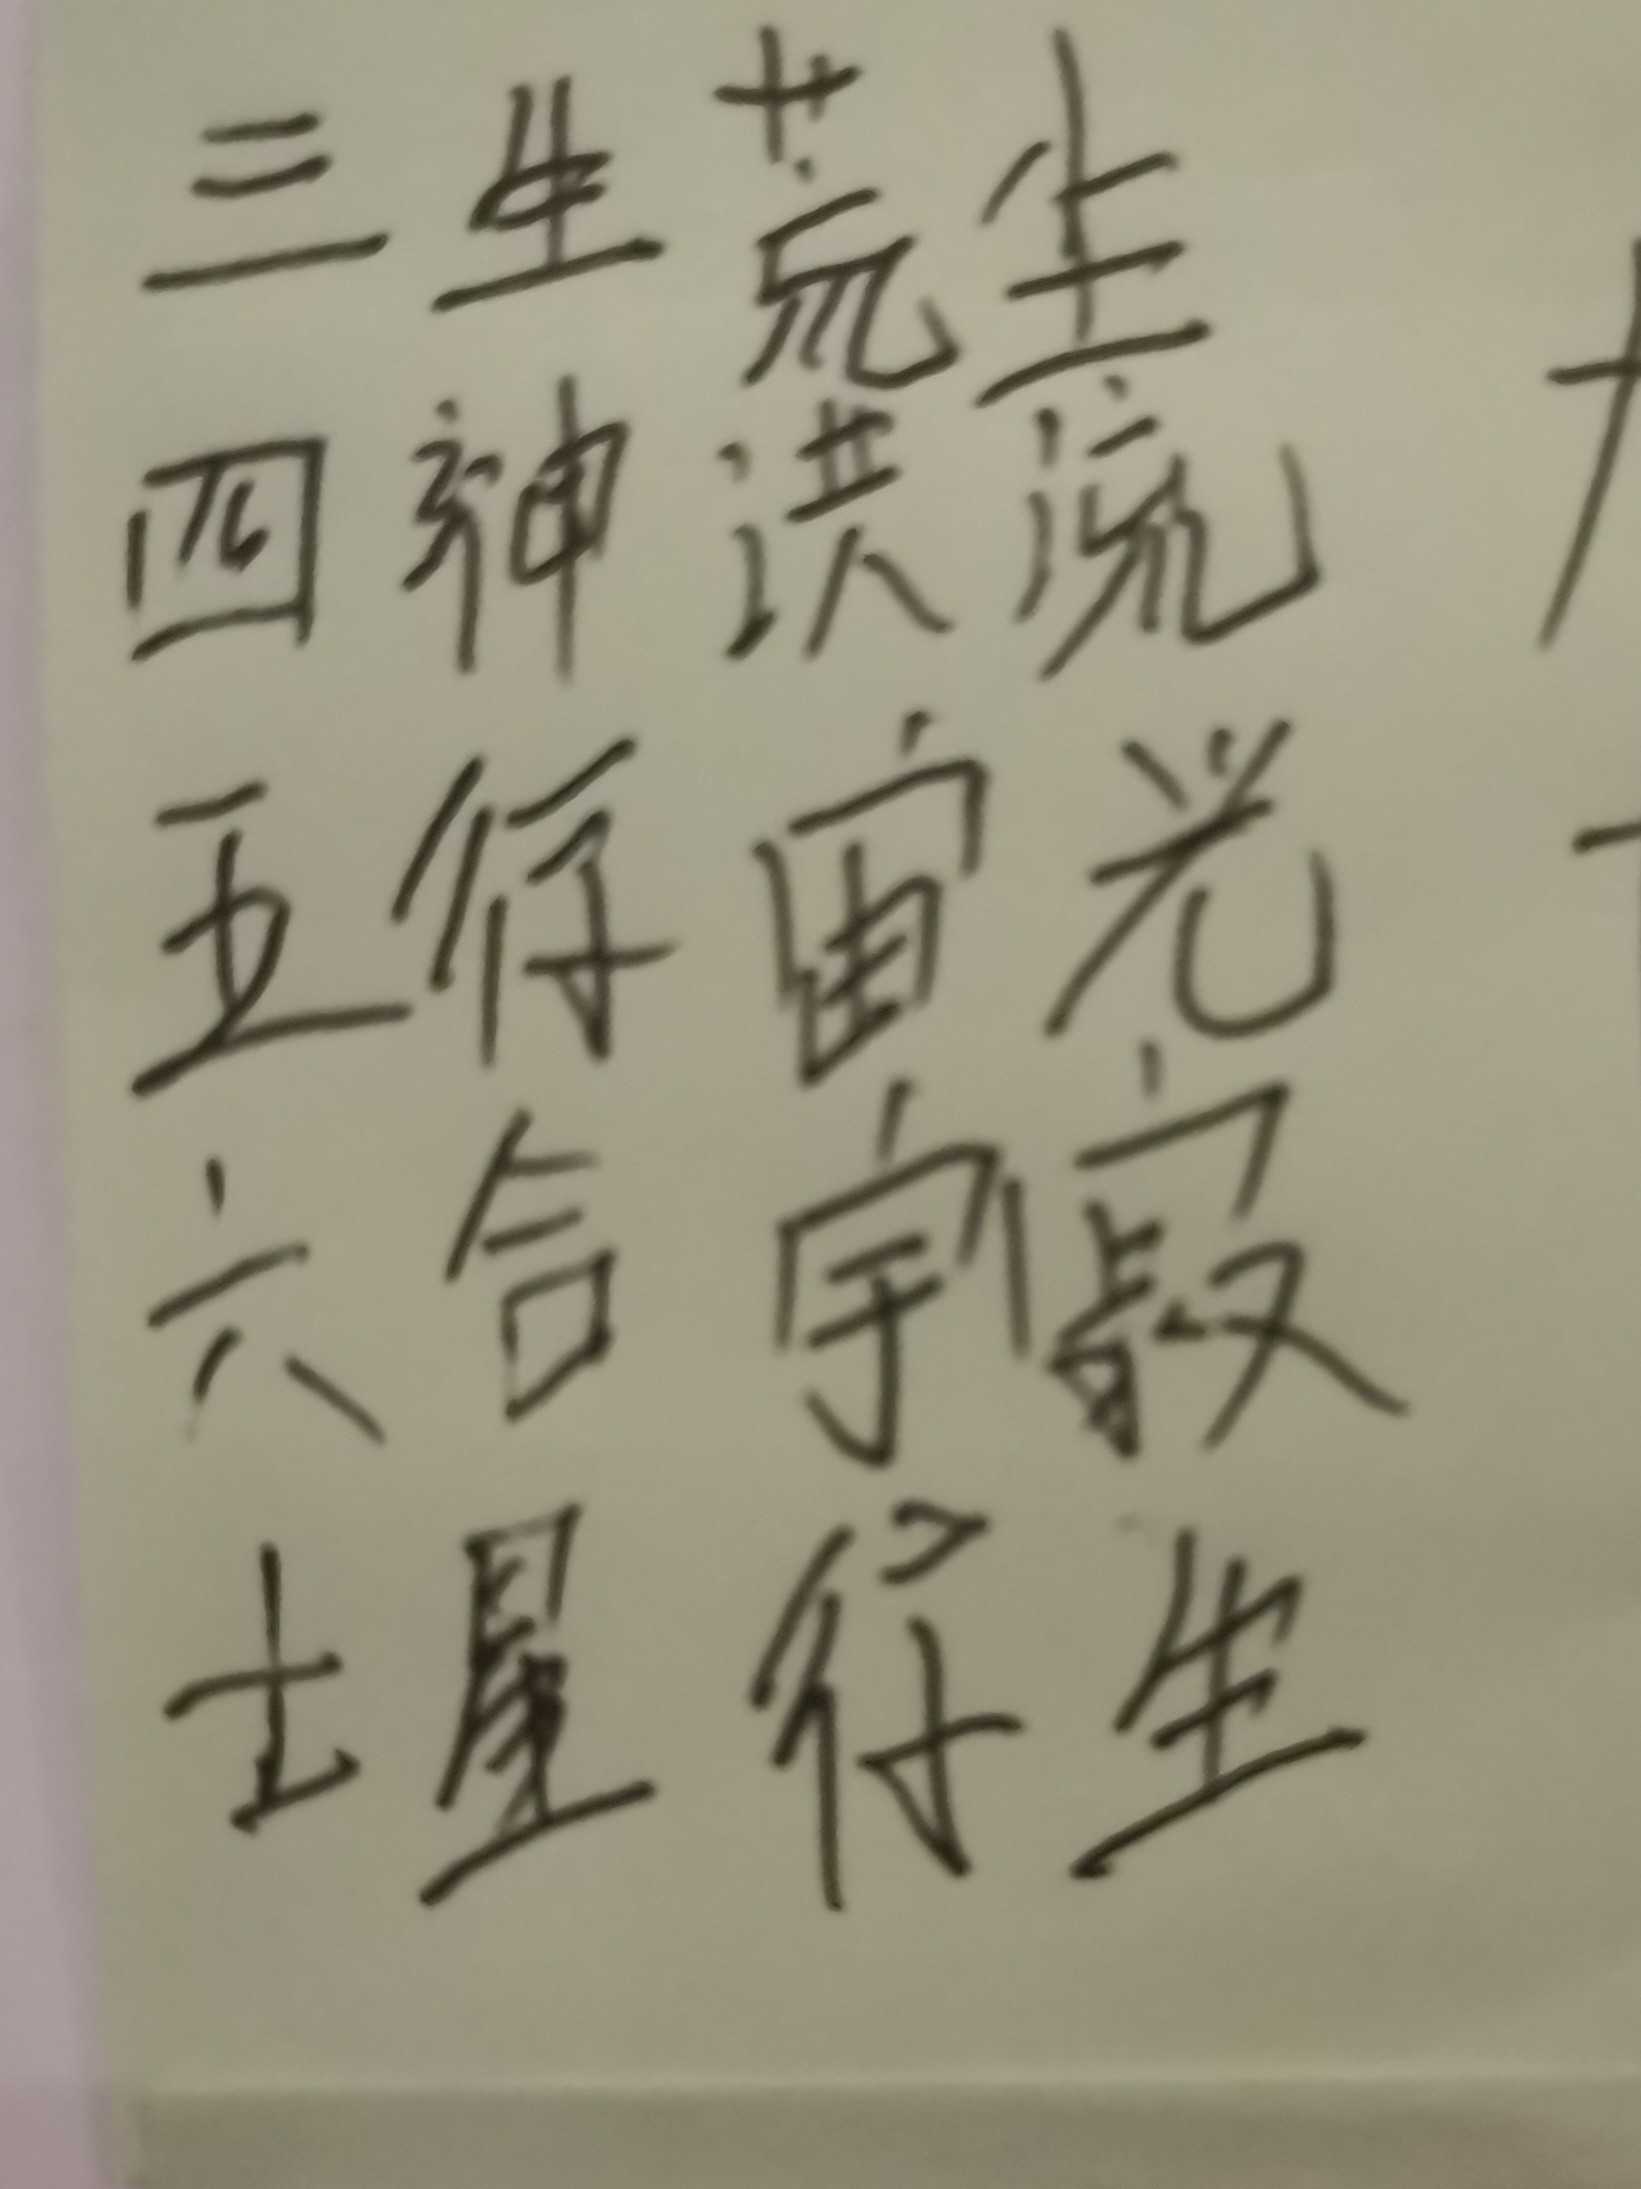 三生荒生
四神洪流
五行宙光
六合宇寂
七星行生